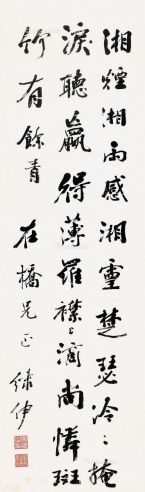 湘煙湘雨感湘靈楚瑟泠〻掩
淚聽贏得薄羅襟〻滴尚憐斑
竹有餘青　在橋兄正　緑伊